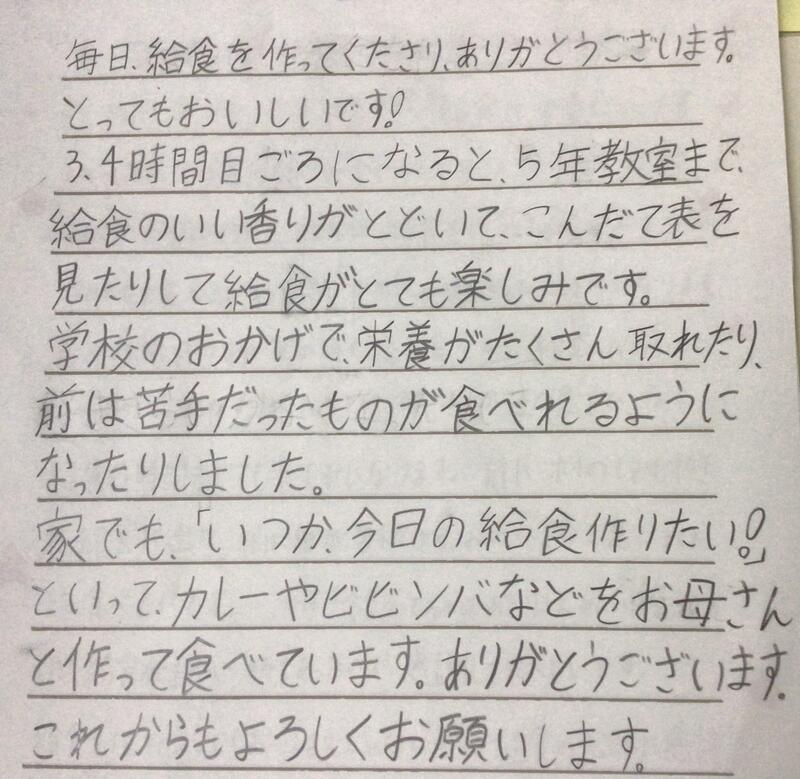 毎日、給食を作ってくださり、ありがとうございます。
とってもおいしいです!
3、4時間目ごろになると、5年教室まで、
給食のいい香りがとどいて、こんだて表を
見たりして給食がとても楽しみです。
学校のおかげで、栄養がたくさん取れたり、
前は苦手だったものが食べれるように
なったりしました。
家でも、「いつか、今日の給食作りたい!」
といって、カレーやビビンバなどをお母さん
と作って食べています。ありがとうございます。
これからもよろしくお願いします。